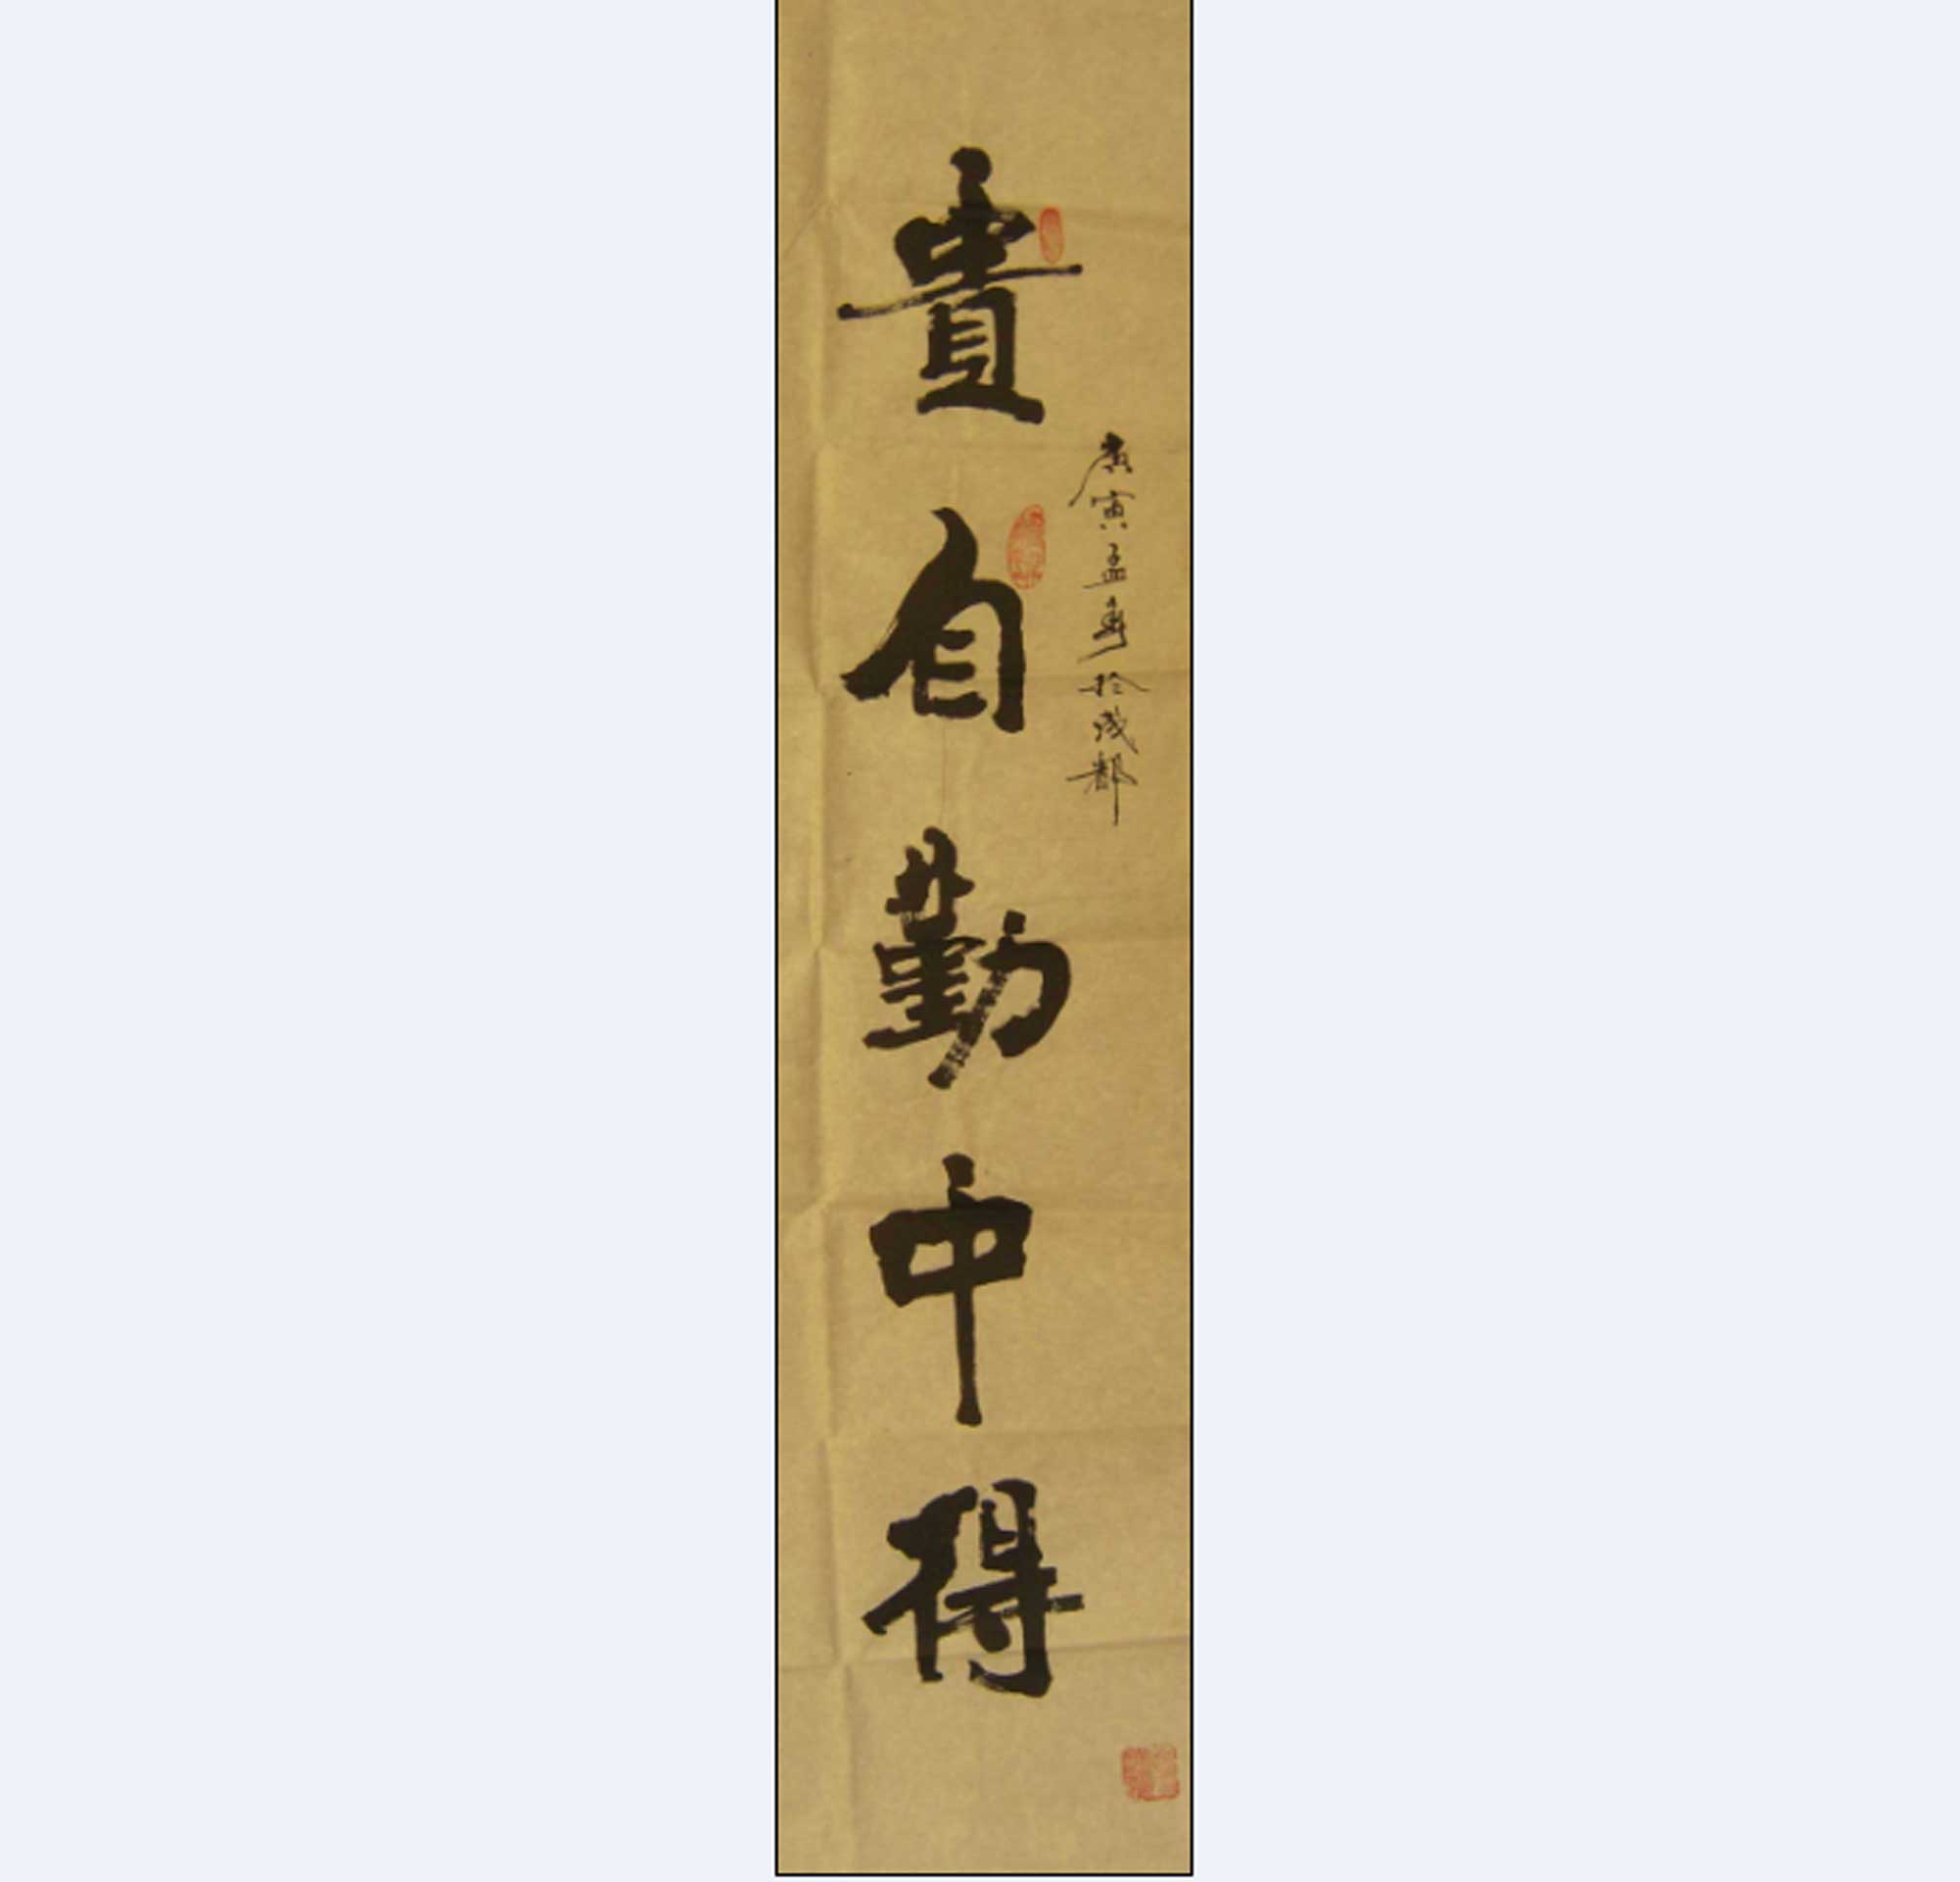 庚寅孟春於成都
貴自勤中得